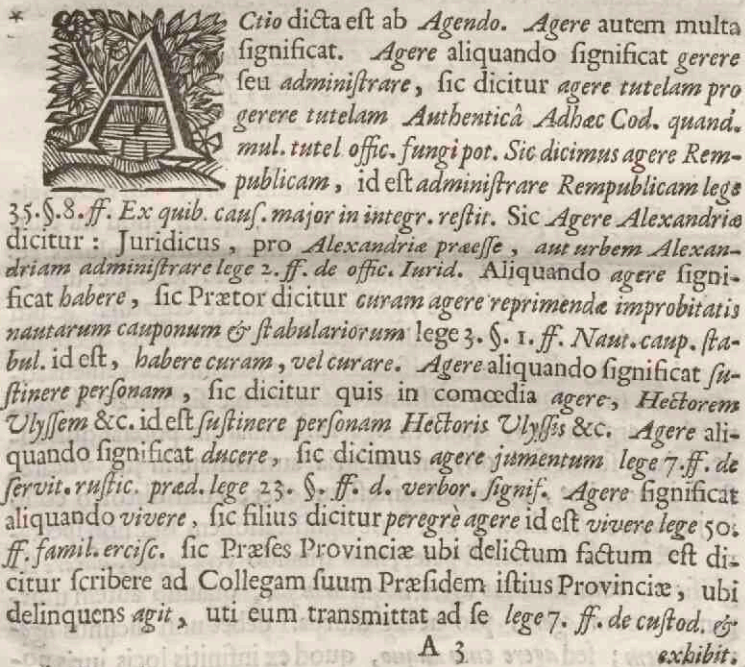 * ACtio dicta eſt ab Agendo. Agere autem multa
ſignificat. Agere aliquando ſignificat gerere
ſeu adminiſtrare, ſic dicitur agere tutelam pro
gerere tutelam Authenticâ Adhæc Cod. quand.
mul. tutel offic. fungi pot. Sic dicimus agere Rem-
publicam, id eſt adminiſtrare Rempublicam lege
35. §. 8. ff. Ex quib. cauſ. major in integr. reſtit. Sic Agere Alexandriæ
dicitur : Juridicus, pro Alexandriæ præeſſe, aut urbem Alexan-
driam adminiſtrare lege 2. ff. de offic. Iurid. Aliquando agere ſigni-
ficat habere, ſic Prætor dicitur curam agere reprimendæ improbitatis
nautarum cauponum & ſtabulariorum lege 3. §. 1. ff. Naut. caup. ſta-
bul. id eſt, habere curam, vel curare. Agere aliquando ſignificat ſu-
ſtinere perſonam, ſic dicitur quis in comœdia agere, Hectorem
Ulyſſem &c. id eſt ſuſtinere perſonam Hectoris Ulyſſis &c. Agere ali-
quando ſignificat ducere, ſic dicimus agere jumentum lege 7. ff. de
ſervit. ruſtic. præd. lege 23. §. ff. d. verbor. ſignif. Agere ſignificat
aliquando vivere, ſic filius dicitur peregrè agere id eſt vivere lege 50.
ff. famil. erciſc. ſic Præſes Provinciæ ubi delictum factum eſt di-
citur ſcribere ad Collegam ſuum Præſidem iſtius Provinciæ, ubi
delinquens agit, uti eum transmittat ad ſe lege 7. ff. de cuſtod. &
A 3 exhibit.